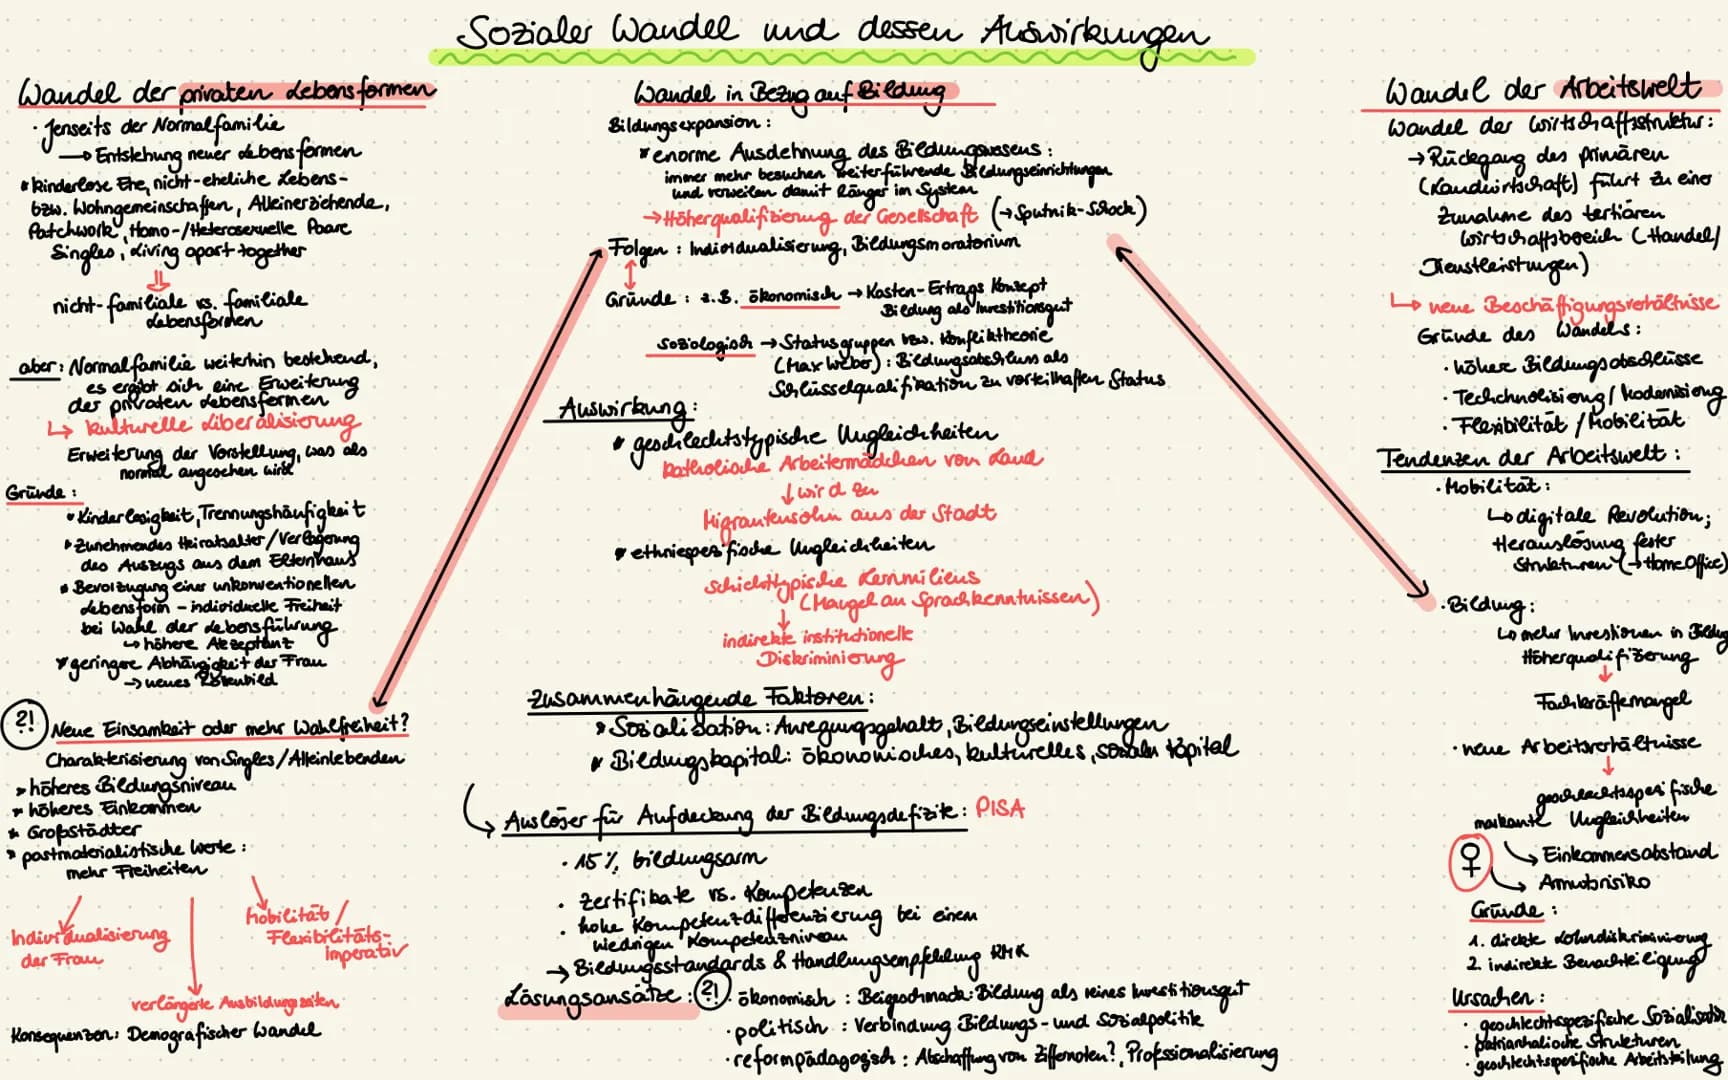 Sozialer Wandel und dessen Auswirkungen
Wandel der privaten Lebensformen
· Jenseits der Normalfamilie
→ Entstehung neuer Lebensformen
* kinderlose Ehe, nicht-eheliche Lebens-
bzw. Wohngemeinschaften, Alleinerziehende,
Patchwork, Homo-/Heterosexuelle Paare
Singles, Living apart together
⇓
nicht-familiale vs. familiale
Lebensformen
aber: Normalfamilie weiterhin bestehend,
es ergibt sich eine Erweiterung
der privaten Lebensformen
↳ kulturelle Liberalisierung
Erweiterung der Vorstellung, was als
normal angesehen wird
Gründe:
* Kinderlosigkeit, Trennungshäufigkeit
* Zunehmendes Heiratsalter/Verlagerung
des Auszugs aus dem Elternhaus
* Bevorzugung einer unkonventionellen
Lebensform - individuelle Freiheit
bei Wahl der Lebensführung
↳ höhere Akzeptanz
* geringere Abhängigkeit der Frau
→ neues Rollenbild
?! Neue Einsamkeit oder mehr Wahlfreiheit?
Charakterisierung von Singles/Alleinlebenden
* höheres Bildungsniveau
* höheres Einkommen
* Großstädter
* postmaterialistische Werte:
mehr Freiheiten
Individualisierung
der Frau
verlängerte Ausbildungszeiten
Mobilität/
Flexibilitäts-
imperativ
Konsequenzen: Demografischer Wandel
Wandel in Bezug auf Bildung
Bildungsexpansion:
* enorme Ausdehnung des Bildungswesens:
immer mehr besuchen weiterführende Bildungseinrichtungen
und verweilen damit länger im System
→ Höherqualifizierung der Gesellschaft (→ Sputnik-Schock)
Folgen: Individualisierung, Bildungsmoratorium
↕
Gründe: z.B. ökonomisch → Kosten-Ertrags Konzept
Bildung als Investitionsgut
soziologisch → Statusgruppen bzw. Konflikttheorie
(Max Weber): Bildungsabschluss als
Schlüsselqualifikation zu vorteilhaften Status
Auswirkung:
* geschlechtstypische Ungleichheiten
katholische Arbeitermädchen von Land
↓ wird zu
Migrantensohn aus der Stadt
* ethniespezifische Ungleichheiten
schichttypische Lernmilieus
(Mangel an Sprachkenntnissen)
↓
indirekte institutionelle
Diskriminierung
Zusammenhängende Faktoren:
* Sozialisation: Anregungsgehalt, Bildungseinstellungen
* Bildungskapital: ökonomisches, kulturelles, soziales Kapital
Auslöser für Aufdeckung der Bildungsdefizite: PISA
· 15% bildungsarm
· Zertifikate vs. Kompetenzen
· hohe Kompetenzdifferenzierung bei einem
niedrigen Kompetenzniveau
→ Bildungsstandards & Handlungsempfehlung KMK
Lösungsansätze: ?! · ökonomisch: Beigeschmack: Bildung als reines Investitionsgut
· politisch: Verbindung Bildungs- und Sozialpolitik
· reformpädagogisch: Abschaffung von Ziffernoten?, Professionalisierung
Wandel der Arbeitswelt
Wandel der Wirtschaftsstruktur:
→ Rückgang des primären
(Landwirtschaft) führt zu einer
Zunahme des tertiären
Wirtschaftsbereich (Handel/
Dienstleistungen)
↳ neue Beschäftigungsverhältnisse
Gründe des Wandels:
· höhere Bildungsabschlüsse
· Techchnolisiong/Modernisiong
· Flexibilität/Mobilität
Tendenzen der Arbeitswelt:
· Mobilität:
↳ digitale Revolution;
Herauslösung fester
Strukturen (→ Home Office)
· Bildung:
↳ mehr Investionen in Bildung
Höherqualifizierung
↓
Fachkräftemangel
· neue Arbeitsverhältnisse
↓
geschlechtsspezifische
markante Ungleichheiten
♀ → Einkommensabstand
→ Armutsrisiko
Gründe:
1. direkte Lohndiskriminierung
2. indirekte Benachteiligung
Ursachen:
· geschlechtspezifische Sozialisation
· patriarchalische Strukturen
· geschlechtspezifische Arbeitsteilung